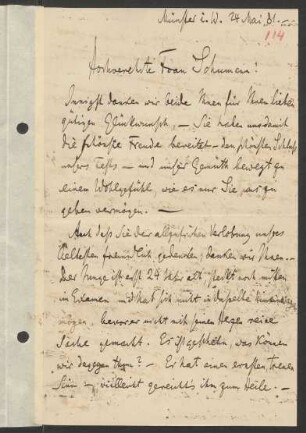 Münster i. W. 24 Mai 81.
114
Hochverehrte Frau Schumann!
Innigst danken wir beide Ihnen für Ihren lieben
gütigen Glückwunsch, — Sie haben uns damit
die schönste Freude bereitet — den schönsten Schluß
unsres Festes — und unser Gemüth bewegt zu
einem Wohlgefühl, wie es nur Sie uns zu
geben vermögen. —
Auch daß Sie der allzufrühen Verlobung unsres
Aeltesten freundlich gedenken, danken wir Ihnen. —
Der Junge ist erst 24 Jahr alt, steckt noch mitten
im Examen und hat sich nicht in dasselbe
bevor er nicht mit seinem Herzen reine
Sache gemacht. Es ist geschehen, was können
wir dagegen thun? — Er hat einen ernsten, treuen
Sinn u. vielleicht gereicht's ihm zum Heile. —